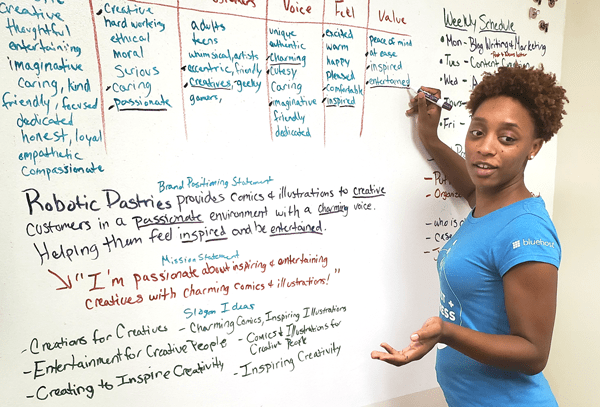 Creative
thoughtful
entertaining
imaginative
caring, kind
friendly, focused
dedicated
honest, loyal
empathetic
Compassionate
Creative
hard working
ethical
moral
Serious
caring
passionate
adults
teens
whimsical, artists
eccentric, friendly
Creatives, geeky
gamers,
Voice
unique
authentic
Charming
cutesy
Caring
imaginative
friendly
dedicated
Feel
excited
warm
happy
pleased
comfortable
inspired
Value
peace of mind
at ease
inspired
entertained
Weekly Schedule
Mon- Blog Writing & Marketing
Tues - Content
Wed -
Fri -
Brand Positioning Statement
Robotic Pastries provides comics & illustrations to creative
customers in a passionate environment with a charming voice.
Helping them feel inspired and be entertained.
Mission Statement
"I'm passionate about inspiring & entertaining
creatives with charming comics & illustrations!"
Slogan Ideas
- Creations for Creatives
- Entertainment for Creative People
- Creating to Inspire Creativity
- Charming Comics, Inspiring Illustrations
- Comics & Illustrations for
Creative People
- Inspiring Creativity
bluehost